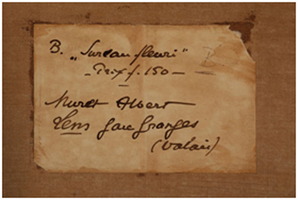 B. „Sureau fleuri"
– Prix f. 150 –
Muret Albert
Lens gare Granges
(Valais)